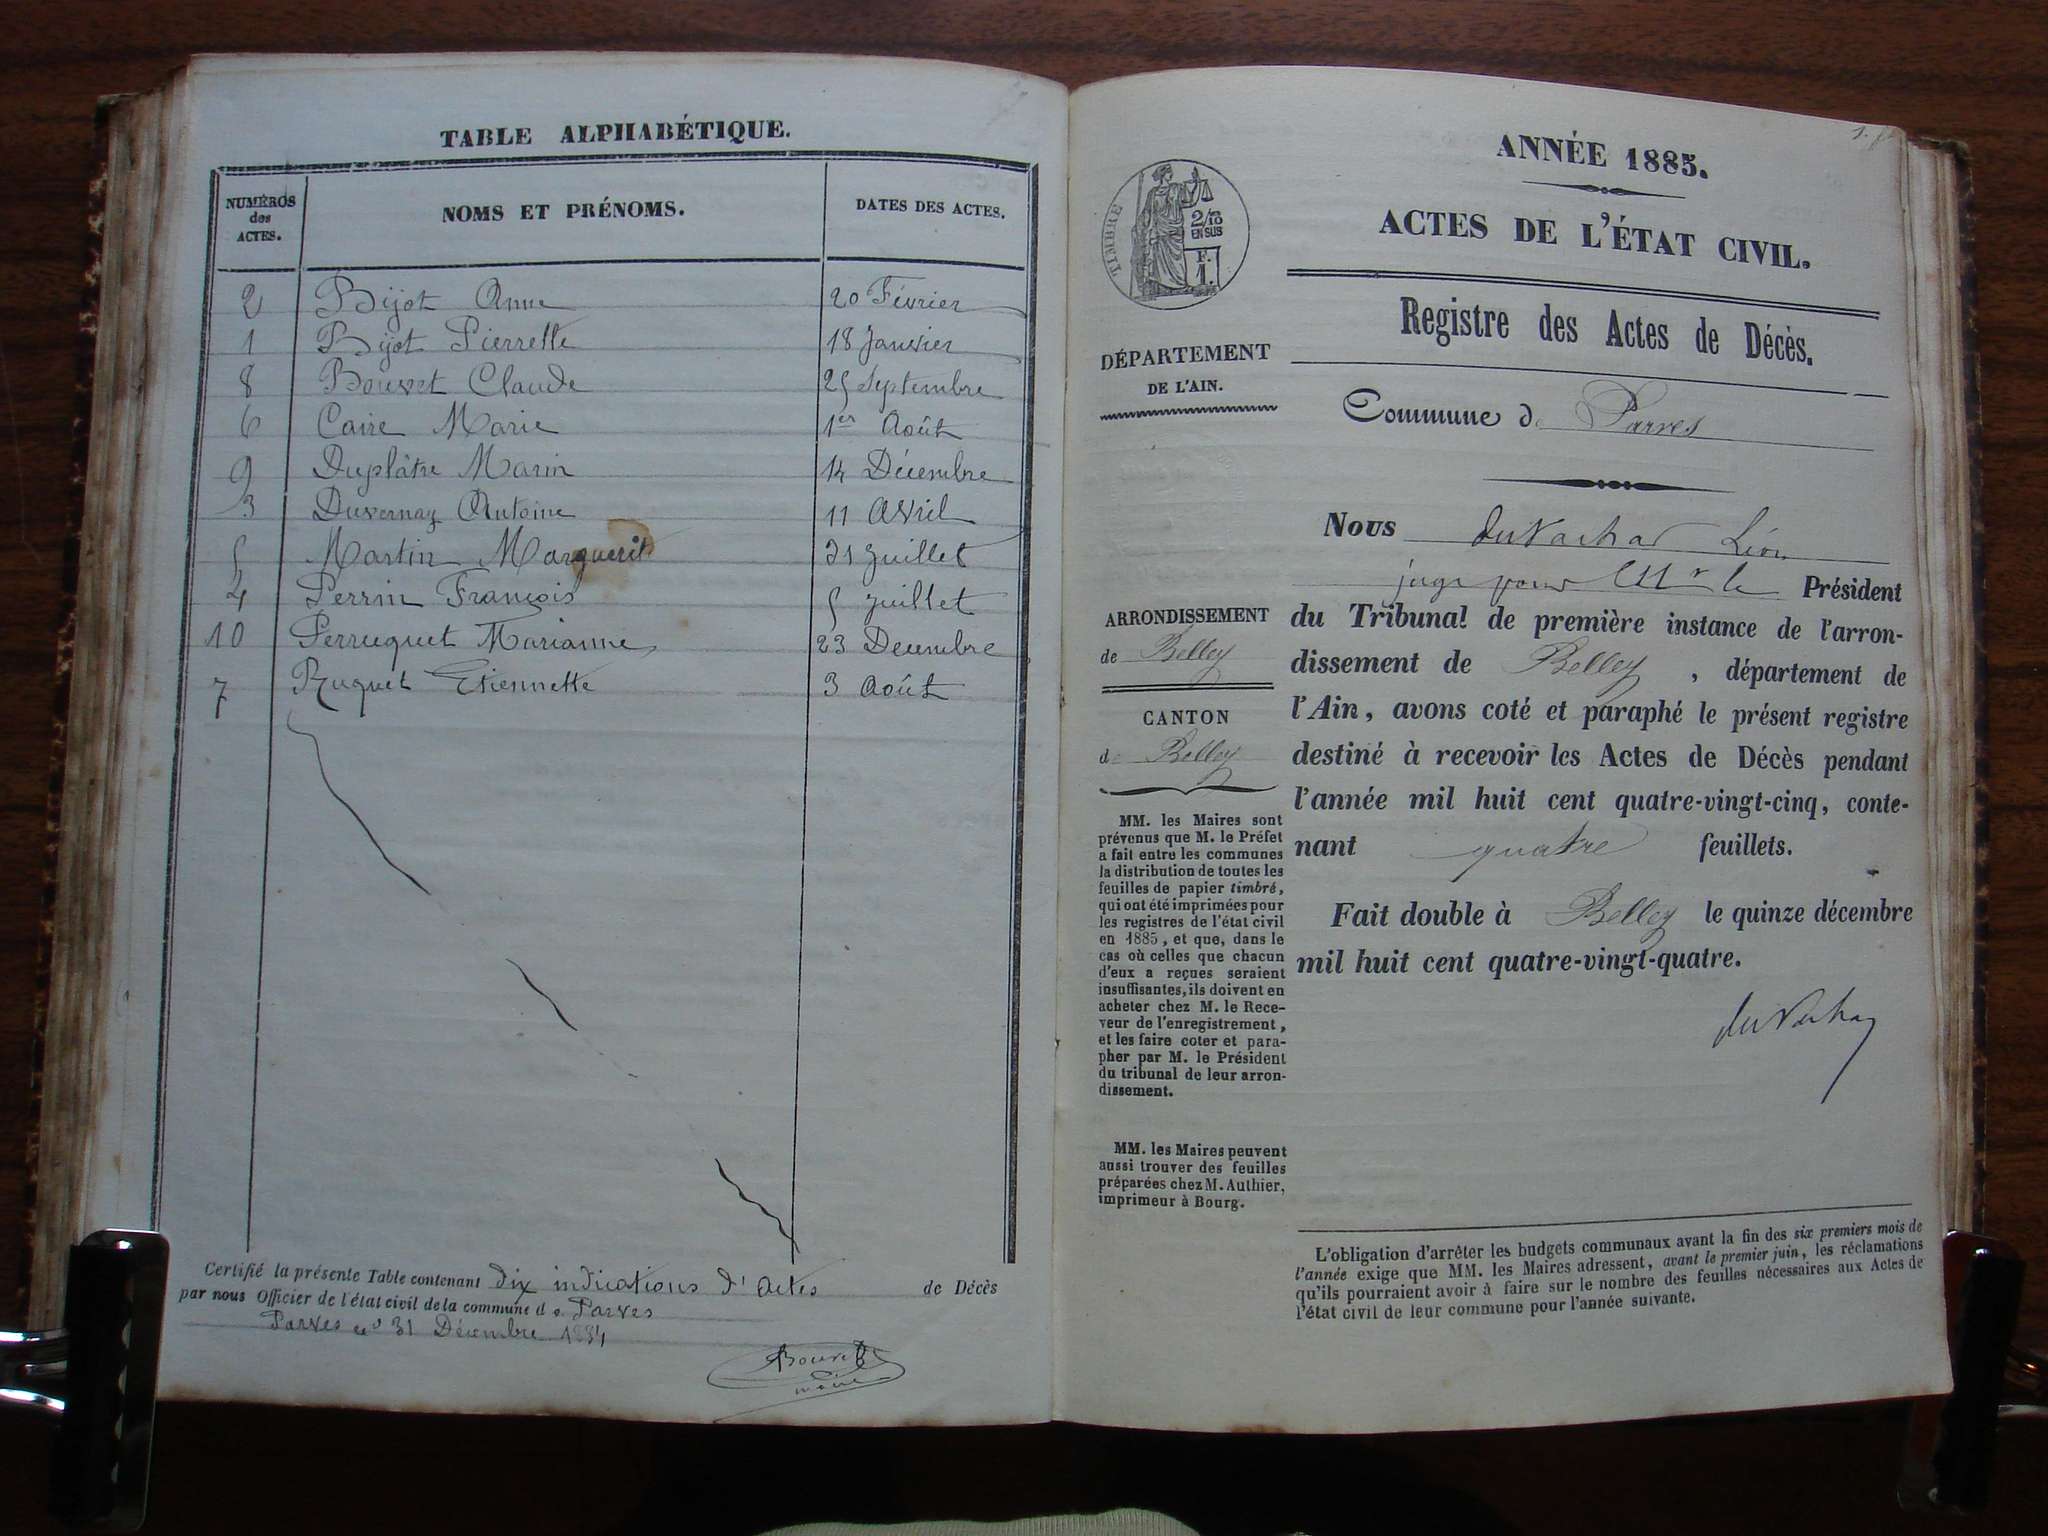 TABLE ALPHABÉTIQUE.
NUMÉROS des ACTES. NOMS ET PRÉNOMS. DATES DES ACTES.
2 Bijot Anne 20 Février
1 Bijot Pierrette 18 Janvier
8 Bouvet Claude 25 Septembre
6 Caire Marie 1er Août
9 Duplâtre Marin 14 Décembre
3 Duvernay Antoine 11 Avril
5 Martin Marguerite 31 Juillet
4 Perrin François 5 Juillet
10 Perruquet Marianne 23 Decembre
7 Ruquet Etiennette 3 Août
Certifié la présente Table contenant dix indications d'actes de Décès
par nous Officier de l'état civil de la commune de Parves
Parves le 31 Décembre 1884
Bouvet
maire
ANNÉE 1885.
ACTES DE L'ÉTAT CIVIL.
TIMBRE
2/10
EN SUS
F.
1.
Registre des Actes de Décès.
DÉPARTEMENT
DE L'AIN.
Commune de Parves
Nous Léon
juge pour Mr le Président
du Tribunal de première instance de l'arron-
dissement de Belley, département de
l'Ain, avons coté et paraphé le présent registre
destiné à recevoir les Actes de Décès pendant
l'année mil huit cent quatre-vingt-cinq, conte-
nant quatre feuillets.
Fait double à Belley le quinze décembre
mil huit cent quatre-vingt-quatre.
ARRONDISSEMENT
de Belley
CANTON
de Belley
MM. les Maires sont
prévenus que M. le Préfet
a fait entre les communes
la distribution de toutes les
feuilles de papier timbré,
qui ont été imprimées pour
les registres de l'état civil
en 1885, et que, dans le
cas où celles que chacun
d'eux a reçues seraient
insuffisantes, ils doivent en
acheter chez M. le Rece-
veur de l'enregistrement,
et les faire coter et para-
pher par M. le Président
du tribunal de leur arron-
dissement.
MM. les Maires peuvent
aussi trouver des feuilles
préparées chez M. Authier,
imprimeur à Bourg.
L'obligation d'arrêter les budgets communaux avant la fin des six premiers mois de
l'année exige que MM. les Maires adressent, avant le premier juin, les réclamations
qu'ils pourraient avoir à faire sur le nombre des feuilles nécessaires aux Actes de
l'état civil de leur commune pour l'année suivante.